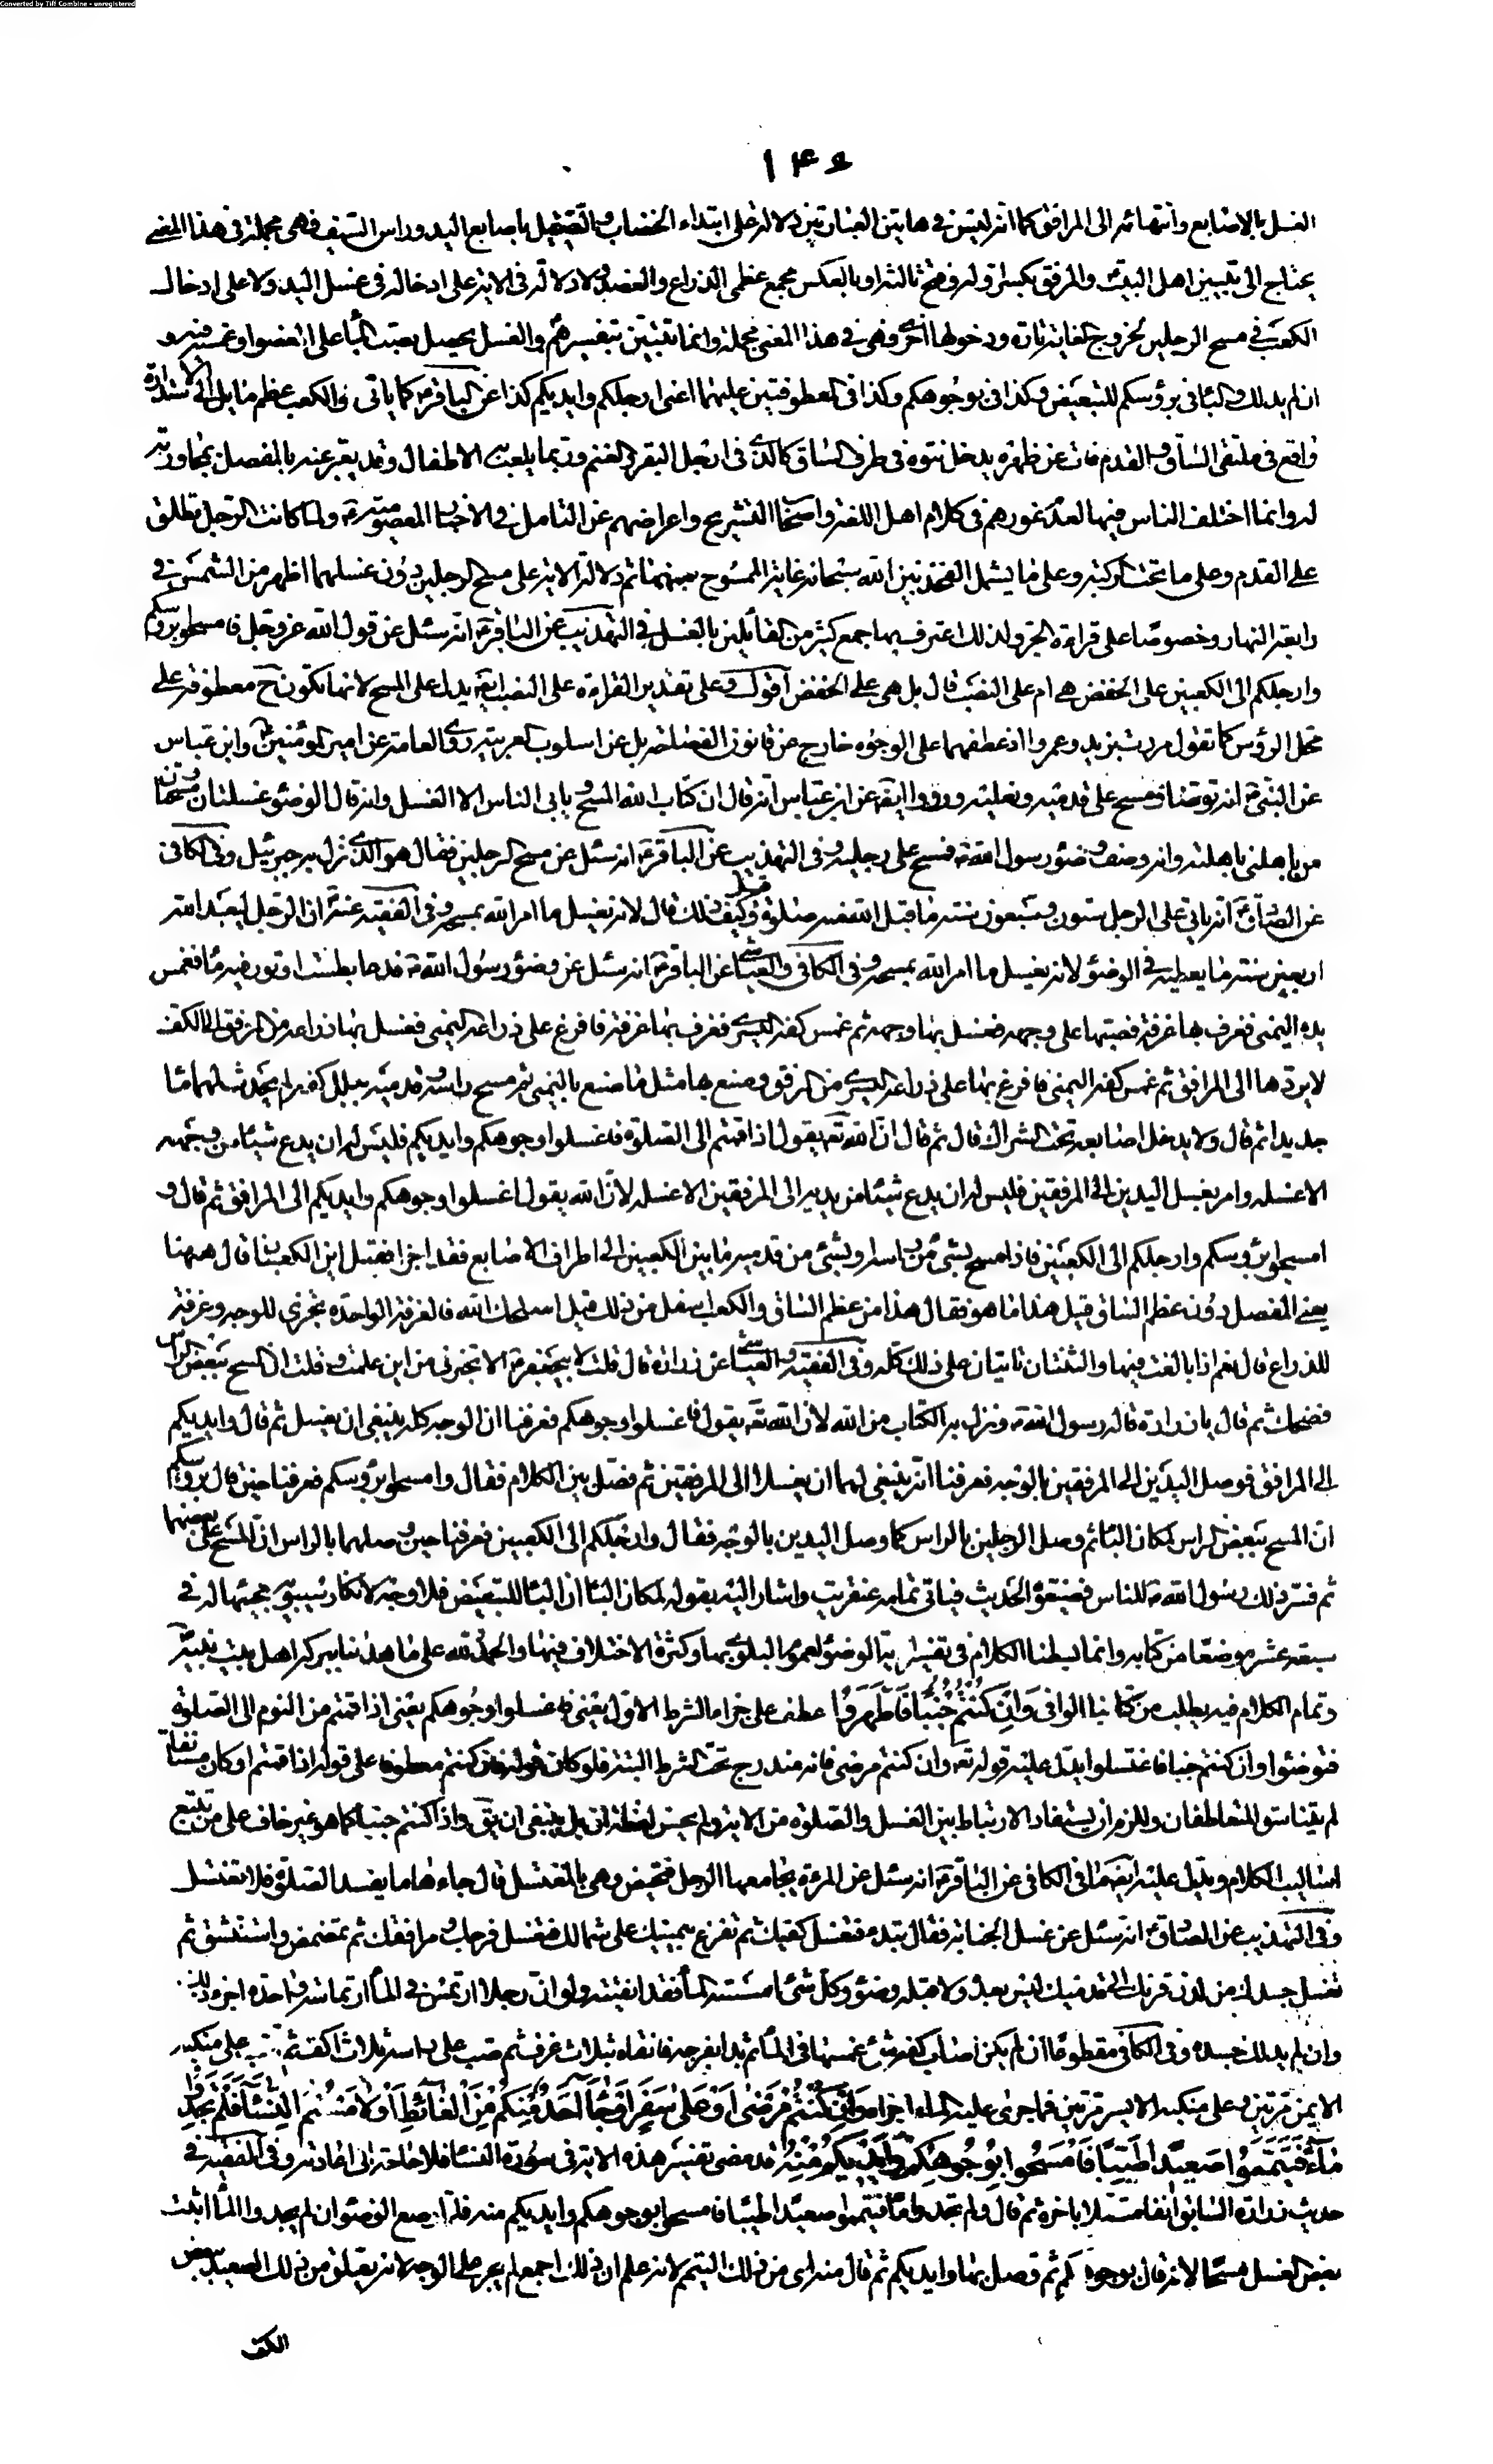 Converted by Tiff Combine - unregistered
۱۴۶
الغسل بالاصابع وانتهائه الى المرافق كما انه ليس فى هاتين العبارتين دلالة على ابتداء الخضاب والتصقيل باصابع اليد وراس السيف فهى مجملة فى هذا المعنى
يحتاج الى تبيين اهل البيت والمرفق بكسر اوله وفتح ثالثه او بالعكس مجمع عظمى الذراع والعضد ولا دلالة فى الاية على ادخاله فى غسل اليد ولا على ادخال
الكعب فى مسح الرجلين لخروج الغاية تارة ودخولها اخرى فهى فى هذا المعنى مجملة وانما تتبين بتفسيرهم والغسل يحصل بصب الماء على العضو او غمسه فيه و
ان لم يدلك والباء فى برؤسكم للتبعيض وكذا فى بوجوهكم وكذا فى المعطوفتين عليهما اعنى ارجلكم وايديكم كذا عن الباقر ع كما ياتى والكعب عظم مايل الى الاستدارة
واقع فى ملتقى الساق والقدم نات عن ظهره يدخل نتوه فى طرف الساق كالذى فى ارجل البقر والغنم وربما يلعب به الاطفال وقد يعبر عنه بالمفصل لمجاورته
له وانما اختلف الناس فيها لعدم غورهم فى كلام اهل اللغة واصحاب التشريح واعراضهم عن التامل فى الاخبار المعصومية ولما كانت الرجل تطلق
على القدم وعلى ما تحت الركبة وعلى ما يشمل الفخذ بين الله سبحانه غاية الممسوح منهما ثم دلالة الاية على مسح الرجلين دون غسلهما اظهر من الشمس فى
رابعة النهار وخصوصا على قراءة الجر ولذلك اعترف بها جمع كثير من القائلين بالغسل فى التهذيب عن الباقر ع انه سئل عن قول الله عز وجل فامسحوا برؤسكم
وارجلكم الى الكعبين على الخفض هى ام على النصب قال بل هى على الخفض اقول وعلى تقدير القراءة على النصب ايضا يدل على المسح لانها تكون ح معطوفة على
محل الرؤس كما تقول مررت بزيد وعمروا اذ عطفهما على الوجوه خارج عن قانون الفصاحة بل عن اسلوب العربية روى العامة عن امير المؤمنين ع وابن عباس
عن النبى ص انه توضا ومسح على قدميه ونعليه ورووا ايضا عن ابن عباس انه قال ان كتاب الله المسح ويابى الناس الا الغسل وانه قال الوضوء غسلتان ومسحتان
من باهلنى باهلته وانه وصف وضوء رسول الله ص فمسح على رجليه وفى التهذيب عن الباقر ع انه سئل عن مسح الرجلين فقال هو الذى نزل به جبرئيل وفى الكافى
عن الصادق ع انه ياتى على الرجل ستون وسبعون سنة ما قبل الله منه صلوة قيل وكيف ذلك قال لانه يغسل ما امر الله بمسحه وفى الفقيه عنه ع ان الرجل ليعبد الله
اربعين سنة ما يعطيه فى الوضوء لانه يغسل ما امر الله بمسحه وفى الكافى والعياشى عن الباقر ع انه سئل عن وضوء رسول الله ص فدعا بطشت او تور فيه ماء فغمس
يده اليمنى فغرف بها غرفة فصبها على وجهه فغسل بها وجهه ثم غمس كفه اليسرى فغرف بها غرفة فافرغ على ذراعه اليمنى فغسل بها ذراعه من المرفق الى الكف
لا يردها الى المرافق ثم غمس كفه اليمنى فافرغ بها على ذراعه اليسرى من المرفق وصنع بها مثل ما صنع باليمنى ثم مسح راسه وقدميه ببلل كفه لم يحدث لهما ماء
جديدا ثم قال ولا يدخل اصابعه تحت الشراك قال ثم قال ان الله تع يقول اذا قمتم الى الصلوة فاغسلوا وجوهكم وايديكم فليس له ان يدع شيئا من وجهه
الا غسله وامر بغسل اليدين الى المرفقين فليس له ان يدع شيئا من يديه الى المرفقين الا غسله لان الله يقول اغسلوا وجوهكم وايديكم الى المرافق ثم قال و
امسحوا برؤسكم وارجلكم الى الكعبين فاذا مسح بشئ من راسه او بشئ من قدميه ما بين الكعبين الى اطراف الاصابع فقد اجزا فقيل اين الكعبان قال ههنا
يعنى المفصل دون عظم الساق قيل هذا ما هو فقال هذا من عظم الساق والكعب اسفل من ذلك قيل اصلحك الله فالغرفة الواحدة تجزى للوجه وغرفة
للذراع قال نعم اذا بالغت فيها والثنتان تاتيان على ذلك كله وفى الفقيه والعياشى عن زرارة قال قلت لابيجعفر ع الا تخبرنى من اين علمت وقلت ان المسح ببعض الراس
فضحك ثم قال يا زرارة قاله رسول الله ص ونزل به الكتاب من الله لان الله تع يقول فاغسلوا وجوهكم فعرفنا ان الوجه كله ينبغى ان يغسل ثم قال وايديكم
الى المرافق فوصل اليدين الى المرفقين بالوجه فعرفنا انه ينبغى لهما ان يغسلا الى المرفقين ثم فصل بين الكلام فقال وامسحوا برؤسكم فعرفنا حين قال برؤسكم
ان المسح ببعض الراس لمكان الباء ثم وصل الرجلين بالراس كما وصل اليدين بالوجه فقال وارجلكم الى الكعبين فعرفنا حين وصلهما بالراس ان المسح على بعضهما
ثم فسر ذلك رسول الله ص للناس فضيعوه الحديث وياتى تمامه عنقريب واشار اليه بقوله لمكان الباء ان الباء للتبعيض فلا وجه لانكار سيبويه مجيئها له فى
سبعة عشر موضعا من كتابه وانما بسطنا الكلام فى تفسير اية الوضوء لعموم البلوى بها وكثرة الاختلاف فيها والحمد لله على ما هدانا ببركة اهل بيت نبيه
وتمام الكلام فيه يطلب من كتابنا الوافى وَاِنْ كُنْتُمْ جُنُبًا فَاطَّهَّرُوا عطف على جزاء الشرط الاول يعنى فاغسلوا وجوهكم يعنى اذا قمتم من النوم الى الصلوة
فتوضئوا وان كنتم جنبا فاغتسلوا يدل عليه قوله تع وان كنتم مرضى فانه مندرج تحت الشرط البتة فلو كان قوله وان كنتم معطوفا على قوله اذا قمتم او كان مستانفا
لم يتناسق المتعاطفان وللزم ان لا يستفاد الارتباط بين الغسل والصلوة من الاية ولم يحسن لفظة ان بل ينبغى ان يق واذا كنتم جنبا كما هو غير خاف على من تتبع
اساليب الكلام ويدل عليه ايضا ما فى الكافى عن الباقر ع انه سئل عن المرءة يجامعها الرجل فتحيض وهى فى المغتسل قال جاءها ما يفسد الصلوة فلا تغتسل
وفى التهذيب عن الصادق ع انه سئل عن غسل الجنابة فقال تبدء فتغسل كفيك ثم تفرغ بيمينك على شمالك فتغسل فرجك ومرافقك ثم تمضمض واستنشق ثم
تغسل جسدك من لدن قرنك الى قدميك ليس بعده ولا قبله وضوء وكل شئ امسسته الماء فقد انقيته ولو ان رجلا ارتمس فى الماء ارتماسة واحدة اجزءه ذلك
وان لم يدلك جسده وفى الكافى مقطوعا ان لم يكن اصاب كفه شئ غمسها فى الماء ثم بدا بفرجه فانقاه بثلاث غرف ثم صب على راسه ثلاث اكف ثم صب على منكبه
الايمن مرتين وعلى منكبه الايسر مرتين فما جرى عليه الماء اجزاه وَاِنْ كُنْتُمْ مَرْضٰى اَوْ عَلٰى سَفَرٍ اَوْ جَاءَ اَحَدٌ مِنْكُمْ مِنَ الْغَائِطِ اَوْ لَامَسْتُمُ النِّسَاءَ فَلَمْ تَجِدُوا
مَاءً فَتَيَمَّمُوا صَعِيدًا طَيِّبًا فَامْسَحُوا بِوُجُوهِكُمْ وَاَيْدِيكُمْ مِنْهُ قد مضى تفسير هذه الاية فى سورة النساء فلا حاجة الى اعادته وفى الفقيه فى
حديث زرارة السابق انفا متصلا باخره ثم قال ولم تجدوا ماء فتيمموا صعيدا طيبا فامسحوا بوجوهكم وايديكم منه فلما وضع الوضوء ان لم يجدوا الماء اثبت
بعض الغسل مسحا لانه قال بوجوهكم ثم وصل بها وايديكم ثم قال منه اى من ذلك التيمم لانه علم ان ذلك اجمع لم يجر على الوجه لانه يعلق من ذلك الصعيد ببعض
الكف